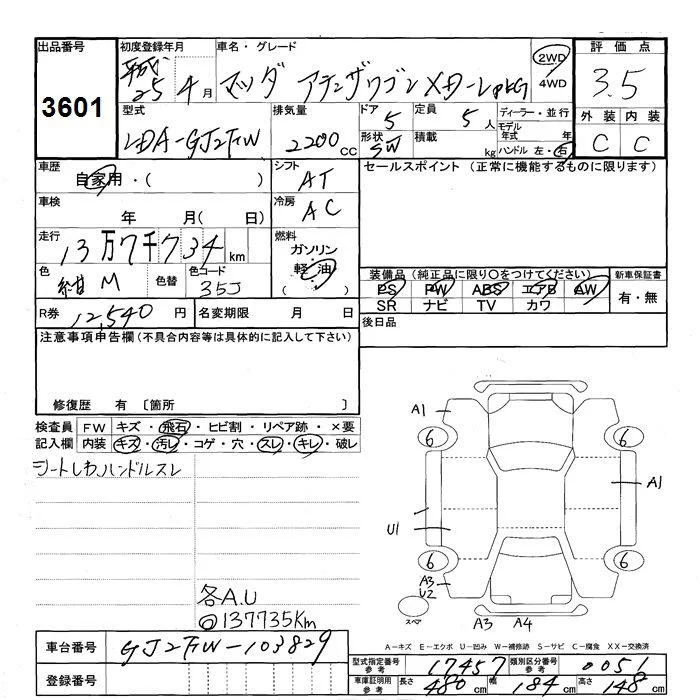 出品番号 3601
初度登録年月 平成25年4月
車名・グレード マツダ アテンザワゴン XD-L PKG
2WD
4WD
評価点 3.5
型式 LDA-GJ2FW
排気量 2200cc
ドア 5
形状 SW
定員 5人
積載 kg
ディーラー・並行
モデル年式 年
ハンドル 左・右
外装 内装
C C
車歴 自家用・( )
シフト AT
セールスポイント (正常に機能するものに限ります)
車検 年 月( 日)
冷房 AC
走行 13万7千734km
燃料 ガソリン
軽油
( )
色 紺M 色替 色コード 35J
装備品(純正品に限り○をつけてください)
PS PW ABS エアB AW
SR ナビ TV カワ
新車保証書
有・無
R券 12,540円 名変期限 月 日
後日品
注意事項申告欄(不具合内容等は具体的に記入して下さい)
修復歴 有 〔箇所 〕
検査員 FW キズ・飛石・ヒビ割・リペア跡・×要
記入欄 内装 キズ・汚レ・コゲ・穴・スレ・キレ・破レ
シートしわ、ハンドルスレ
各A.U
◎137735Km
A1
6 6
A1
U1
6 6
A3
U2
スペア
A3 A4
A-キズ E-エクボ U-凹み W-補修跡 S-サビ C-腐食 XX-交換済
車台番号 GJ2FW-103829
登録番号
型式指定番号 参考 17457 類別区分番号 参考 0051
車庫証明用 参考 長さ 480cm 幅 184cm 高さ 148cm